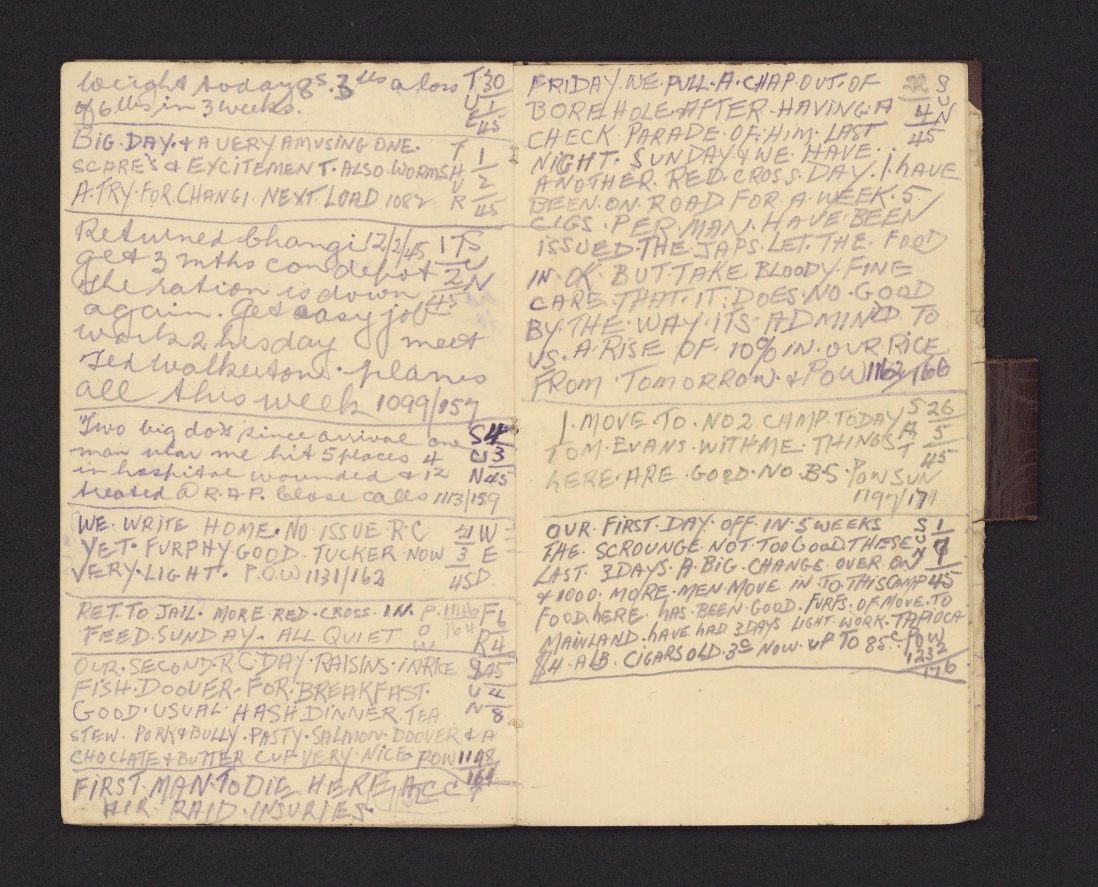 Weight today 8s. 3 lbs a loss TUE 30/1/45
of 6 lbs in 3 weeks.
BIG. DAY. & A VERY AMUSING ONE. THUR 1/2/45
SCARE'S & EXCITEMENT. ALSO. WORMS
A. TRY. FOR. CHANGI. NEXT. LOAD 1082.
Returned Changi 12/2/45 SUN 17/2/45
get 3 mths con depot
the ration is down
again. Get easy job
work 2 hrs day meet
Ted Walkerton. planes
all this week 1099/157
Two big do's since arrival one SUN 4/3/45
man near me hit 5 places 4
in hospital wounded & 12
treated @ R.A.P. Close calls 1113/159
WE. WRITE HOME. NO ISSUE R.C WED 21/3/45
YET. FURPHY GOOD. TUCKER NOW
VERY. LIGHT. P.O.W 1131/162
RET. TO JAIL. MORE RED. CROSS. IN. P.O.W 1146/164 FR 6/4/45
FEED. SUNDAY. ALL QUIET
OUR. SECOND. R C DAY. RAISINS. IN RICE SUN 4/8
FISH. DOOVER. FOR. BREAKFAST.
GOOD. USUAL. HASH. DINNER. TEA
STEW. PORK & BULLY. PASTY. SALMON. DOOVER & A
CHOCLATE & BUTTER CUP. VERY. NICE POW 1148/164
FIRST. MAN. TO DIE HERE ACC T
AIR. RAID. INJURIES.
FRIDAY. WE. PULL. A. CHAP. OUT. OF SUN 22/4/45
BORE HOLE. AFTER. HAVING. A
CHECK PARADE. OF. HIM. LAST
NIGHT. SUNDAY & WE. HAVE..
ANOTHER. RED. CROSS. DAY. I. HAVE
BEEN. ON. ROAD FOR. A. WEEK. 5
CIGS. PER. MAN. HAVE. BEEN
ISSUED. THE. JAPS. LET. THE. FOOD
IN. OK. BUT TAKE BLOODY. FINE
CARE. THAT. IT. DOES. NO. GOOD
BY. THE. WAY. ITS. ADMIND. TO
US. A. RISE OF. 10% IN. OUR. RICE
FROM. TOMORROW. & POW 1162/166
I. MOVE. TO. NO 2 CAMP. TODAY SAT 26/5/45
TOM. EVANS. WITH ME. THINGS
HERE. ARE. GOOD. NO. B.S. POW SUN
1197/171
OUR. FIRST. DAY. OFF. IN. 5 WEEKS SUN 1/7/45
THE. SCROUNGE. NOT. TOO GOOD THESE
LAST. 3 DAYS. A. BIG. CHANGE. OVER. ON
& 1000. MORE. MEN. MOVE IN TO THIS CAMP
FOOD. HERE. HAS. BEEN. GOOD. FURFS. OF. MOVE. TO
MAINLAND. HAVE HAD 3 DAYS LIGHT. WORK. TAPIOCA
$4. A LB. CIGARS OLD. 3c NOW. UP TO 85c. POW
1232/176